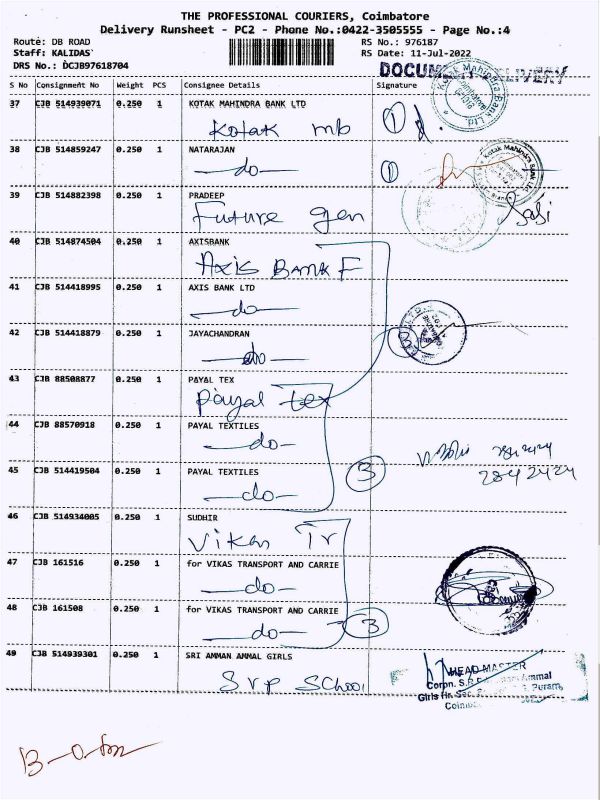 THE PROFESSIONAL COURIERS, Coimbatore
Delivery Runsheet - PC2 - Phone No.:0422-3505555 - Page No.:4
Route: DB ROAD
RS No.: 976187
Staff: KALIDAS
RS Date: 11-Jul-2022
DRS No.: DCJB97618704
DOCUMENT DELIVERY
S No Consignment No Weight PCS Consignee Details Signature
37 CJB 514939071 0.250 1 KOTAK MAHINDRA BANK LTD
Kotak mb 1
38 CJB 514859247 0.250 1 NATARAJAN
-do- 1
Kotak Mahindra Bank Ltd
39 CJB 514882398 0.250 1 PRADEEP
Future gen
40 CJB 514874504 0.250 1 AXISBANK
Axis BANK F
41 CJB 514418995 0.250 1 AXIS BANK LTD
-do-
42 CJB 514418879 0.250 1 JAYACHANDRAN
-do- 3
43 CJB 88508877 0.250 1 PAYAL TEX
Payal tex
44 CJB 88570918 0.250 1 PAYAL TEXTILES
-do-
45 CJB 514419504 0.250 1 PAYAL TEXTILES
-do- 3
2842424
46 CJB 514934005 0.250 1 SUDHIR
Vikas Tr
47 CJB 161516 0.250 1 for VIKAS TRANSPORT AND CARRIE
-do-
48 CJB 161508 0.250 1 for VIKAS TRANSPORT AND CARRIE
-do- 3
49 CJB 514939301 0.250 1 SRI AMMAN AMMAL GIRLS
Srp School
HEAD MASTER
Corpn. Ammal
Girls Hr. Sec. Puram,